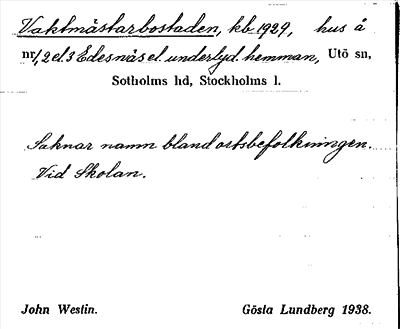 Vaktmästarbostaden, kb. 1929, hus å
nr 1, 2 el. 3 Edesnäs el. underlyd. hemman, Utö sn,
Sotholms hd, Stockholms l.
Saknar namn bland ortsbefolkningen.
Vid Skolan.
John Westin. Gösta Lundberg 1938.